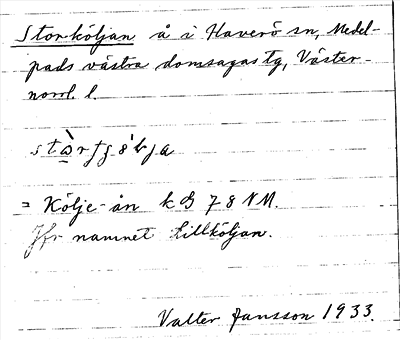 Storköljan å i Haverö sn, Medel-
pads västra domsagas tg, Väster-
norrl. l.
= Kölje-ån kB 78 NM.
Jfr namnet Lillköljan.
Valter Jansson 1933.